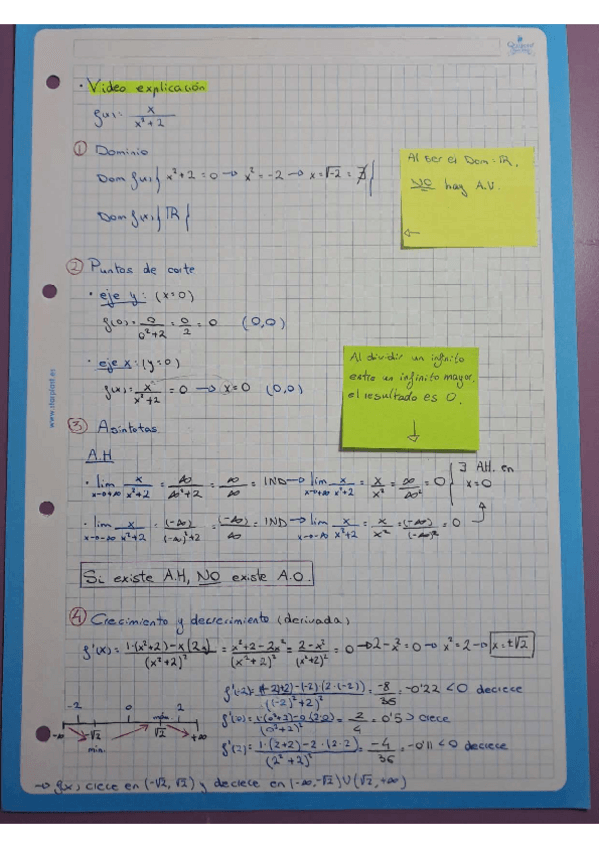 · Video explicación
f(x): x / x²+2
① Dominio
Dom f(x) { x²+2=0 → x²=-2 → x=√-2 = ∄ {
Dom f(x) } ℝ {
Al ser el Dom: ℝ.
NO hay A.V.
←
② Puntos de corte
· eje y: (x=0)
f(0): 0/0²+2 = 0/2 = 0 (0,0)
· eje x: (y=0)
f(x): x/x²+2 = 0 → x=0 (0,0)
Al dividir un infinito
entre un infinito mayor,
el resultado es 0.
↓
③ Asíntotas
A.H
· lim x→+∞ x/x²+2 = ∞/∞²+2 = ∞/∞ = IND → lim x→+∞ x/x²+2 = x/x² = ∞/∞² = 0
∃ AH. en
x=0
· lim x→-∞ x/x²+2 = (-∞)/(-∞)²+2 = (-∞)/∞ = IND → lim x→-∞ x/x²+2 = x/x² = (-∞)/(-∞)² = 0
Si existe A.H, NO existe A.O.
④ Crecimiento y decrecimiento (derivada)
f'(x) = 1·(x²+2)-x(2x)/(x²+2)² = x²+2-2x²/(x²+2)² = 2-x²/(x²+2)² = 0 → 2-x²=0 → x²=2 → x=±√2
-2 0 máx. 2
-∞ -√2 √2 +∞
min.
/(-2)²+2)² = -8/36 = -0'22 < 0 decrece
f'(0) = 1·(0²+2)-0(2·0)/(0²+2)² = 2/4 = 0'5 > crece
f'(2) = 1·(2+2)-2·(2·2)/(2²+2)² = -4/36 = -0'11 < 0 decrece
→ f(x) crece en (-√2, √2) y decrece en (-∞, -√2) U (√2, +∞)
www.starplast.es